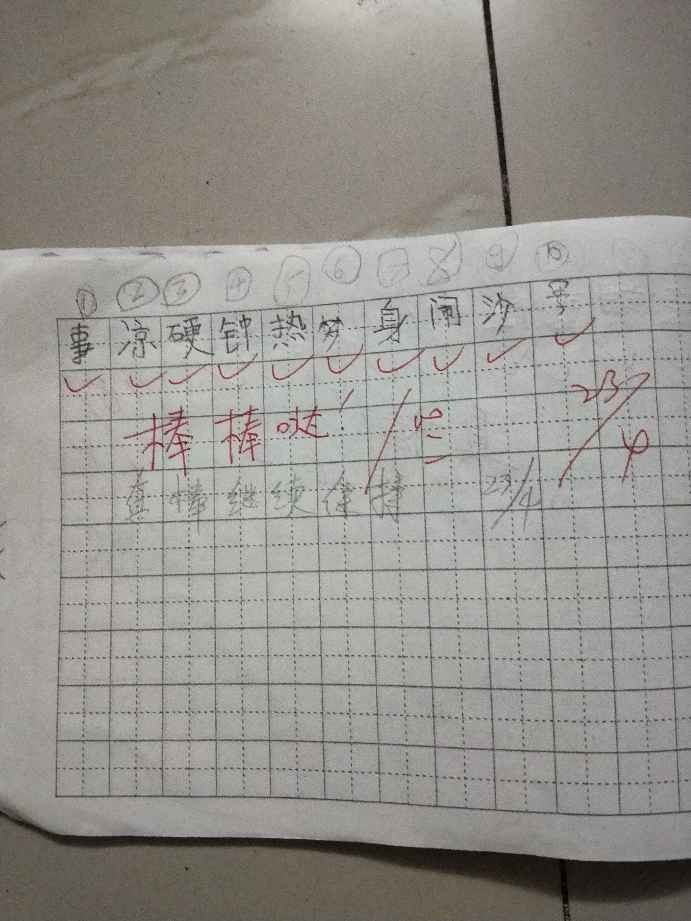 ① ② ③ ④ ⑤ ⑥ ⑦ ⑧ ⑨ ⑩
事 凉 硬 钟 热 梦 身 闹 沙
棒 棒 哒 ! 23/4
真 棒 继 续 保 持 23/4